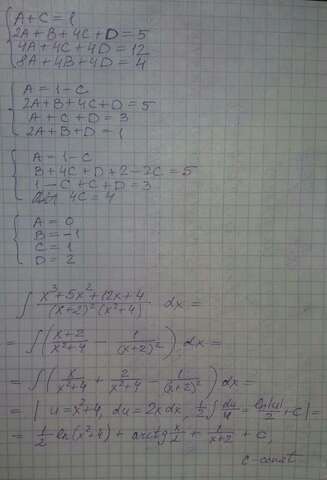 A + C = 1
2A + B + 4C + D = 5
4A + 4C + 4D = 12
8A + 4B + 4D = 4
A = 1 - C
2A + B + 4C + D = 5
A + C + D = 3
2A + B + D = 1
A = 1 - C
B + 4C + D + 2 - 2C = 5
1 - C + C + D = 3
4C = 4
A = 0
B = -1
C = 1
D = 2
∫ (x³ + 5x² + 12x + 4)/((x+2)²(x²+4)) dx =
= ∫ ((x+2)/(x²+4) - 1/(x+2)²) dx =
= ∫ (x/(x²+4) + 2/(x²+4) - 1/(x+2)²) dx =
= | u = x²+4, du = 2x dx, 1/2 ∫ du/u = ln|u|/2 + C | =
= 1/2 ln(x²+4) + arctg x/2 + 1/(x+2) + C,
C - const